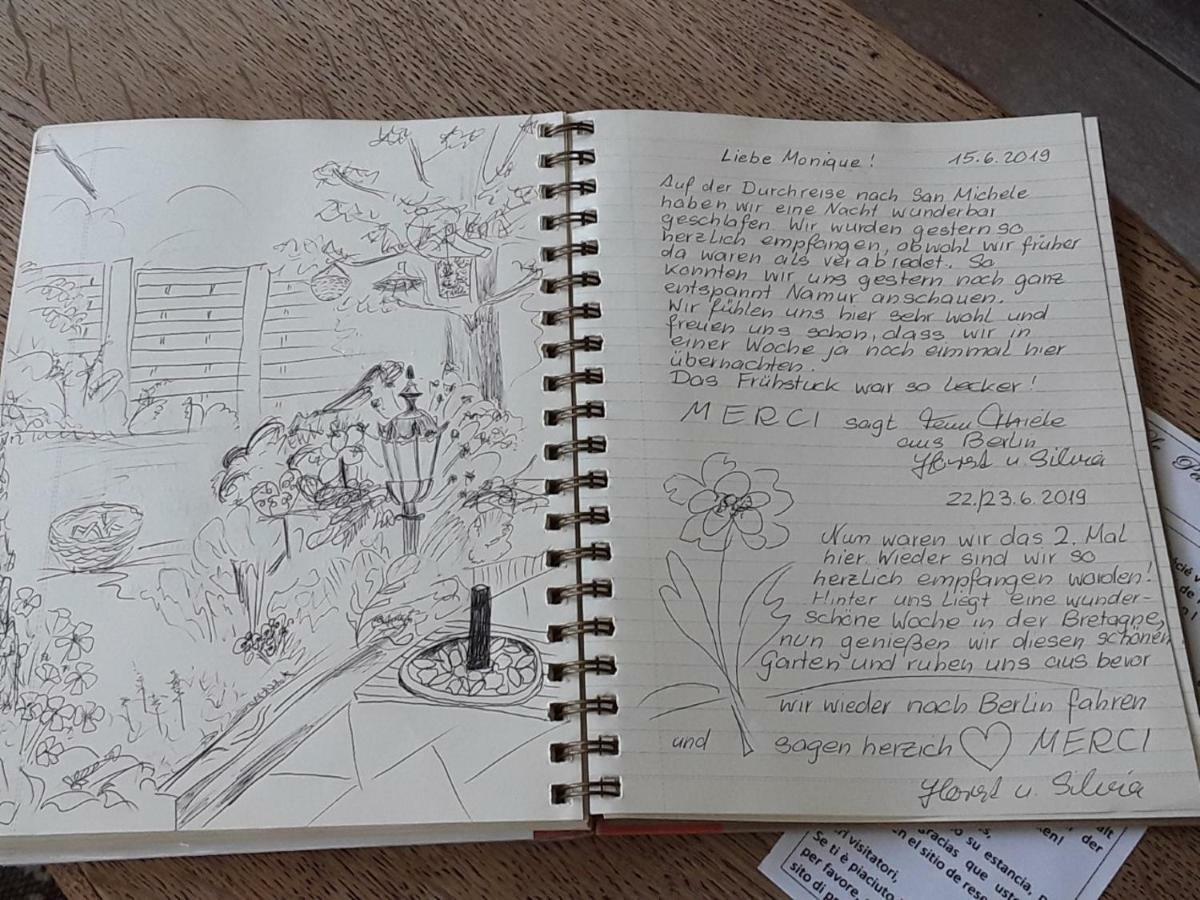 Liebe Monique! 15.6.2019
Auf der Durchreise nach San Michele
haben wir eine Nacht wunderbar
geschlafen. Wir wurden gestern so
herzlich empfangen, obwohl wir früher
da waren als verabredet. So
konnten wir uns gestern noch ganz
entspannt Namur anschauen.
Wir fühlen uns hier sehr wohl und
freuen uns schon, dass wir in
einer Woche ja noch eimmal hier
übernachten.
Das Frühstück war so lecker!
MERCI sagt
aus Berlin
Horst u. Silvia
22./23.6.2019
Nun waren wir das 2. Mal
hier. Wieder sind wir so
herzlich empfangen worden!
Hinter uns liegt eine wunder-
schöne Woche in der Bretagne,
nun genießen wir diesen schönen
Garten und ruhen uns aus bevor
wir wieder nach Berlin fahren
und sagen herzich MERCI
Horst u. Silvia
alt
der
su estancia,
gracias que
en el sitio de
visitatori,
Se ti è piaciuto
per favore,
sito di